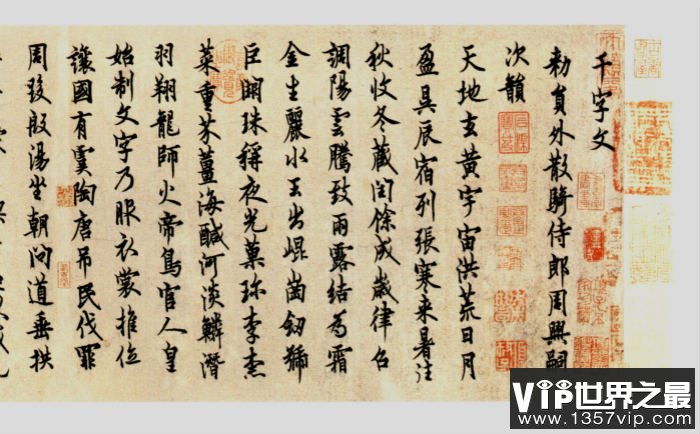 千字文
勅員外散騎侍郎周興嗣
次韻
天地玄黃宇宙洪荒日月
盈昃辰宿列張寒来暑往
秋收冬藏閏餘成歲律召
調陽雲騰致雨露結為霜
金生麗水玉出崐崗劒號
巨闕珠稱夜光菓珍李柰
菜重芥薑海鹹河淡鱗潛
羽翔龍師火帝鳥官人皇
始制文字乃服衣裳推位
讓國有虞陶唐弔民伐罪
周發殷湯坐朝問道垂拱
VIP世界之最
www.1357vip.com